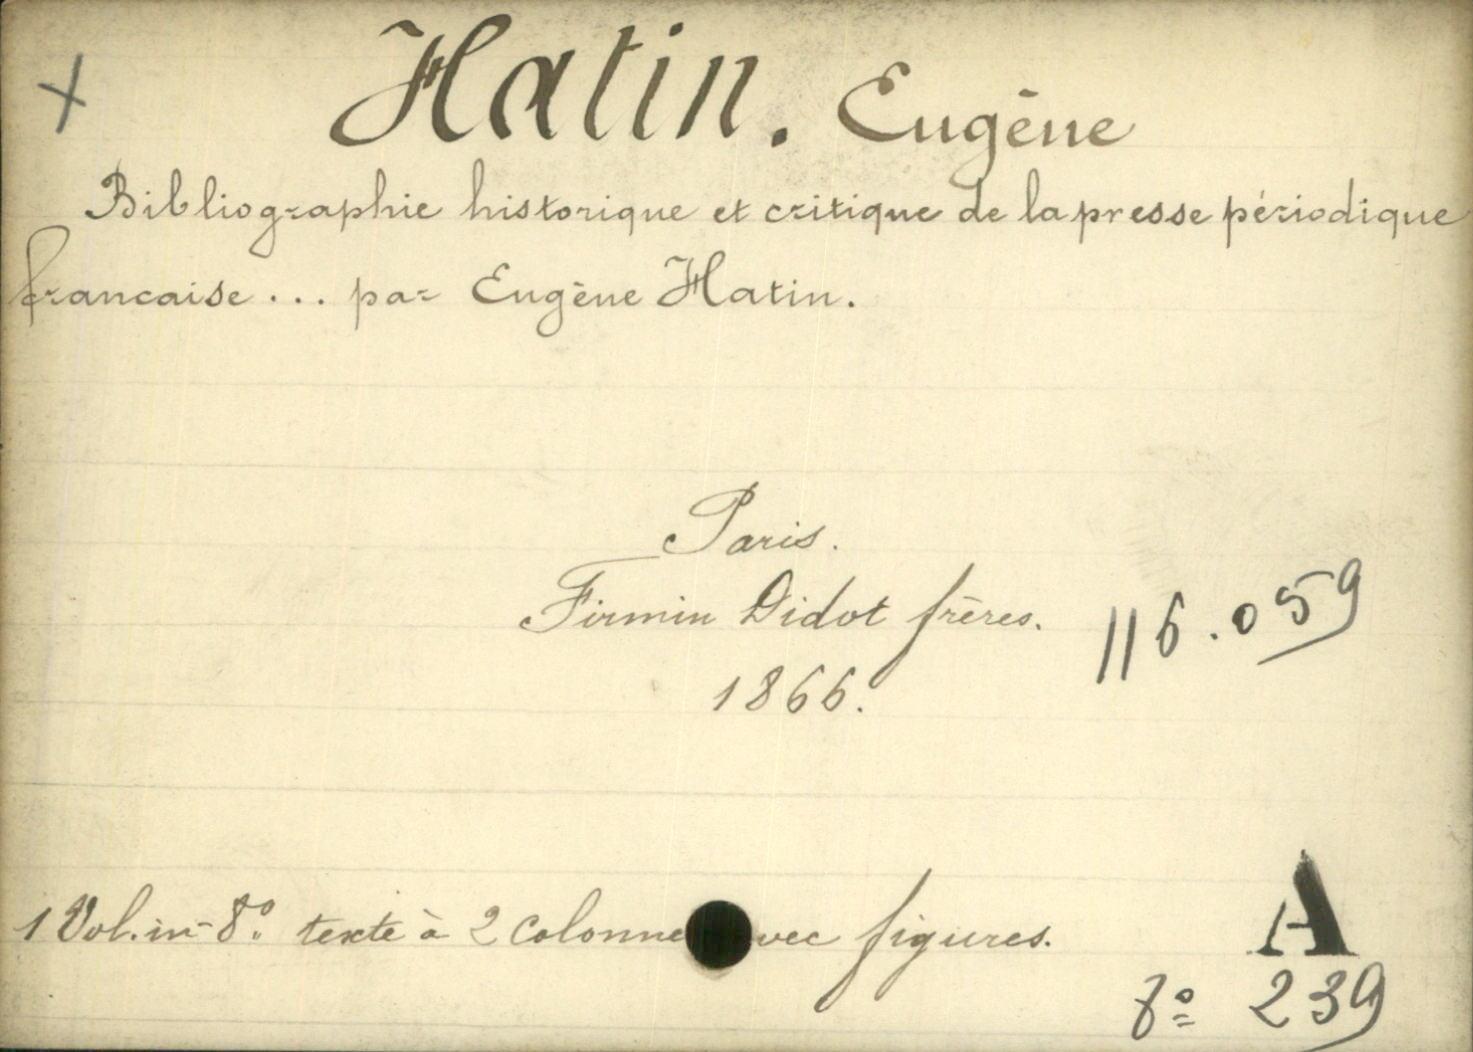 x
Hatin. Eugène
Bibliographie historique et critique de la presse périodique
francaise... par Eugène Hatin.
Paris.
Firmin Didot frères.
116.059
1866.
1 Vol. in-8º texte à 2 colonne vec figures.
A
8º 239